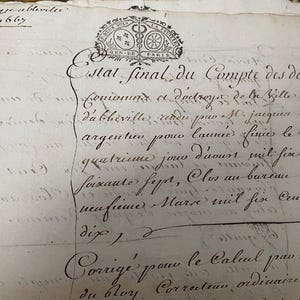 GEN-DE PARIS
Estat final du Compte des de
et d'octroys de la Ville
d'abbeville rendu par Mr Jacques
argentier pour l'année finie le
quatrieme jour d'aoust mil six
soixante sept, Clos au bureau
neufieme Mars mil six cen
dix,
Corrigé pour le Calcul par
du bloy Correcteur ordinaire